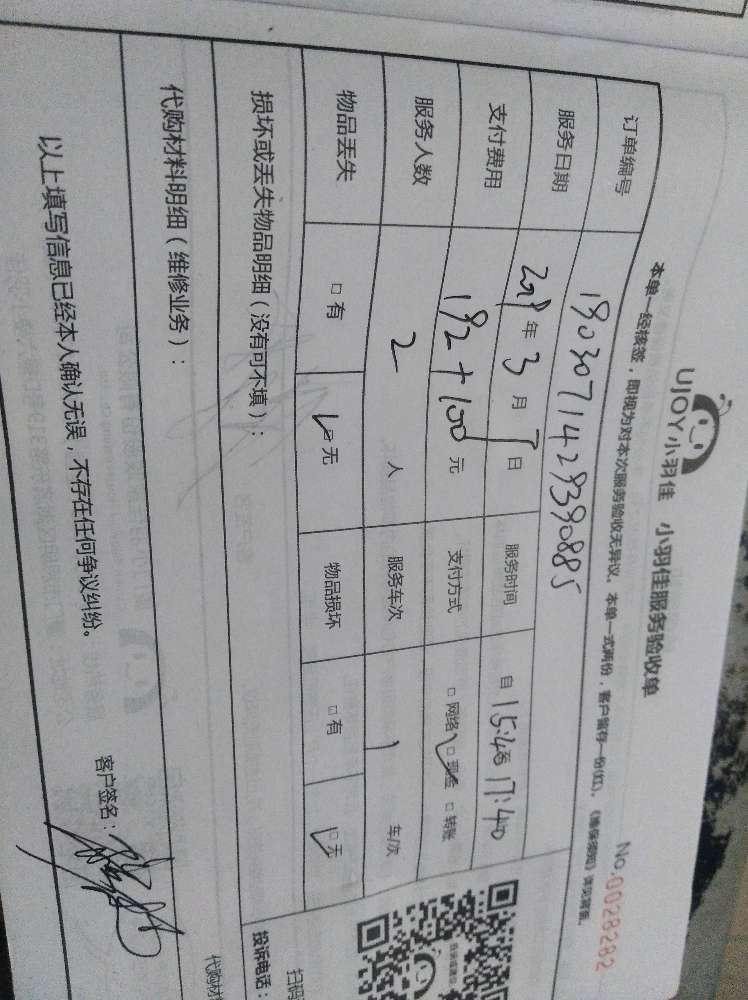 UJOY小羽佳 小羽佳服务验收单
No.0028282
本单一经核签，即视为对本次服务验收无异议。本单一式两份，客户留存一份(红)，《维保须知》详见背面。
订单编号 190307142939088S
服务日期 2019年3月 日 服务时间 自15:40至17:40
支付费用 192+100元 支付方式 □ 网络 □ 现金 □ 转账
服务人数 2 人 服务车次 1 车/次
物品丢失 □ 有 □ 无 物品损坏 □ 有 □ 无
损坏或丢失物品明细（没有可不填）：
代购材料明细（维修业务）：
代购材
以上填写信息已经本人确认无误，不存在任何争议纠纷。
客户签名：
扫码
投诉电话：